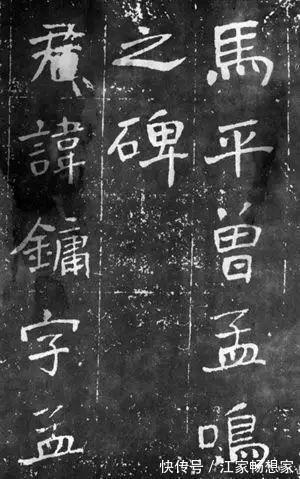 馬平曾孟鳴
之碑
君諱鏞字孟
快传号／江家畅想家